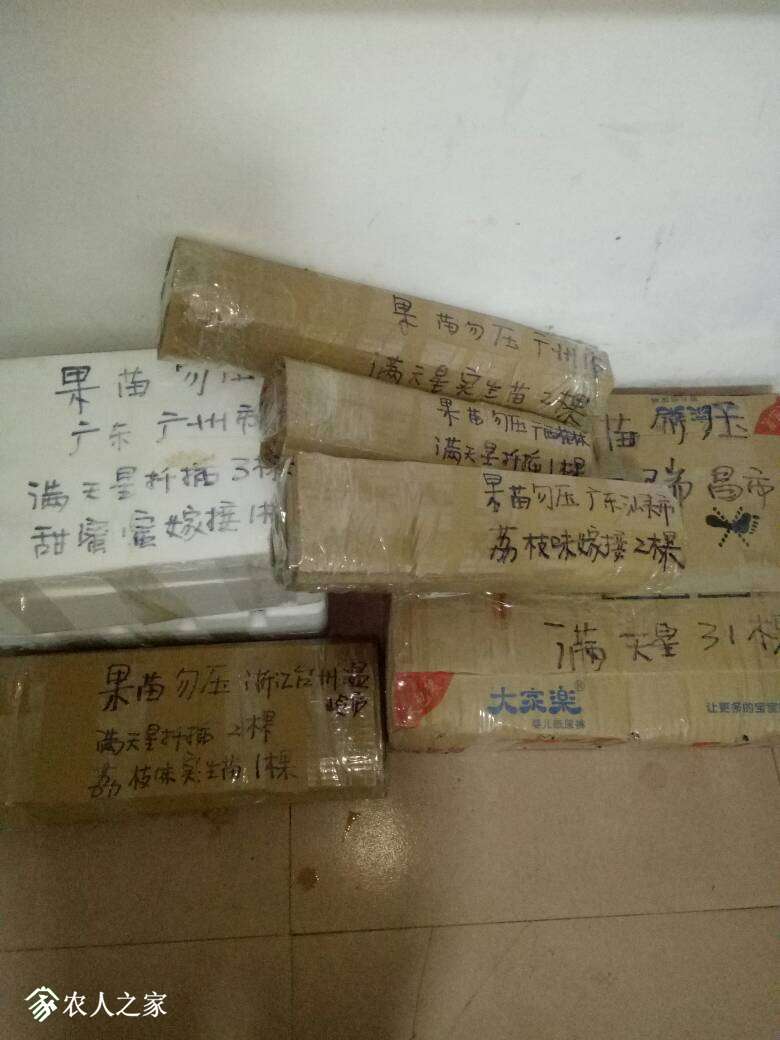 果苗勿压广州市
满天星实生苗2棵
果苗勿压
广东广州市
满天星扦插3棵
甜蜜蜜嫁接1
果苗勿压广西桂林
满天星扦插1棵
果苗勿压广东汕头市
荔枝味嫁接2棵
苗 勿压
瑞昌市
满天星31棵
大家楽®
婴儿纸尿裤
让更多的宝宝
果苗勿压浙江台州温
岭市
满天星扦插2棵
荔枝味实生苗1棵
农人之家